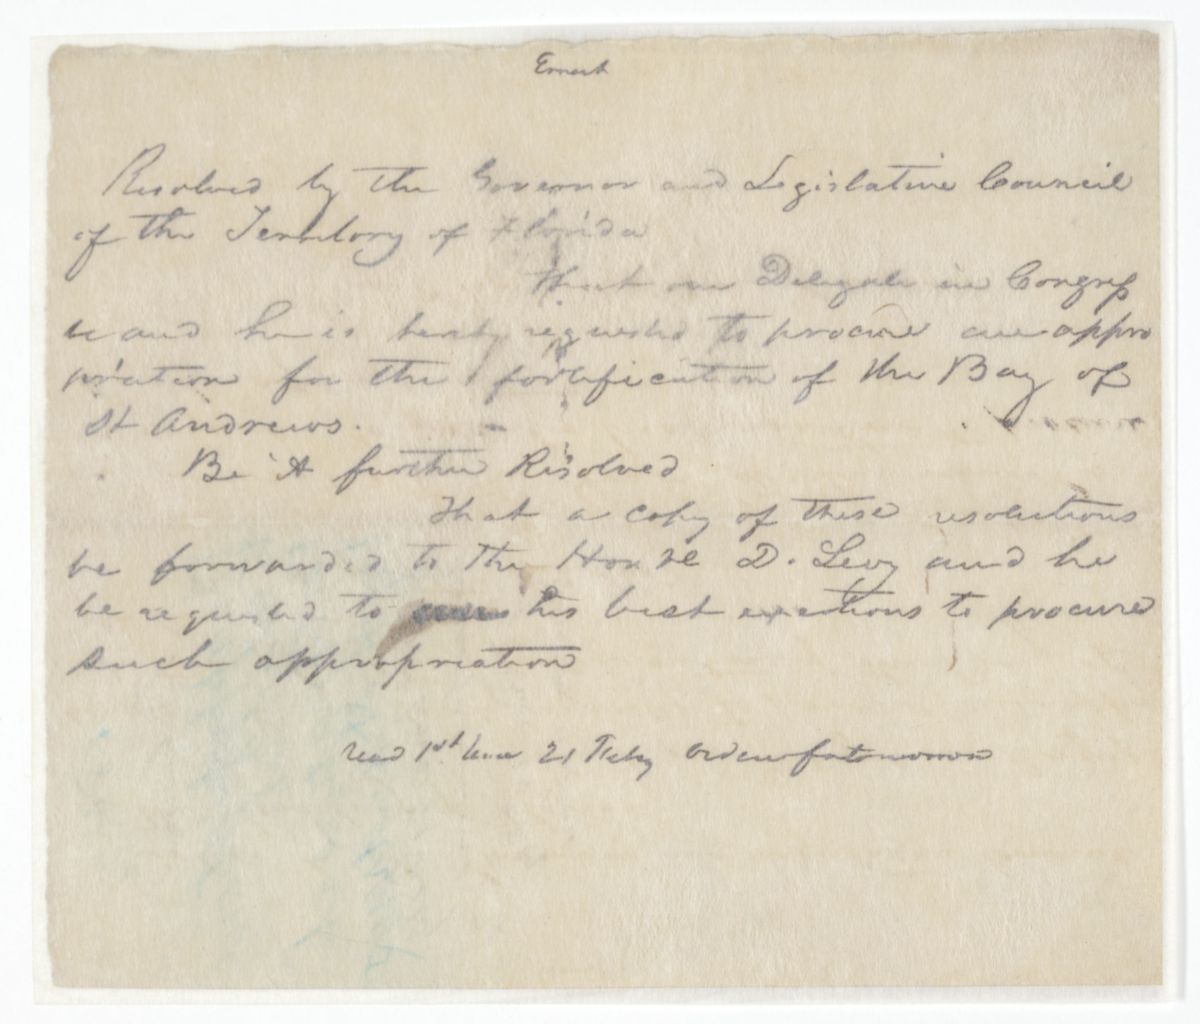 Resolved by the Governor and Legislative Council
of the Territory of Florida
that our Delegate in Congress
be and he is hereby requested to procure an appro
priation for the fortification of the Bay of
St Andrews.
Be it further Resolved
That a copy of these resolutions
be forwarded to the Honble D. Levy and he
be requested to his best exertions to procure
such appropriation
read 1st time 21 Feby order for tomorrow